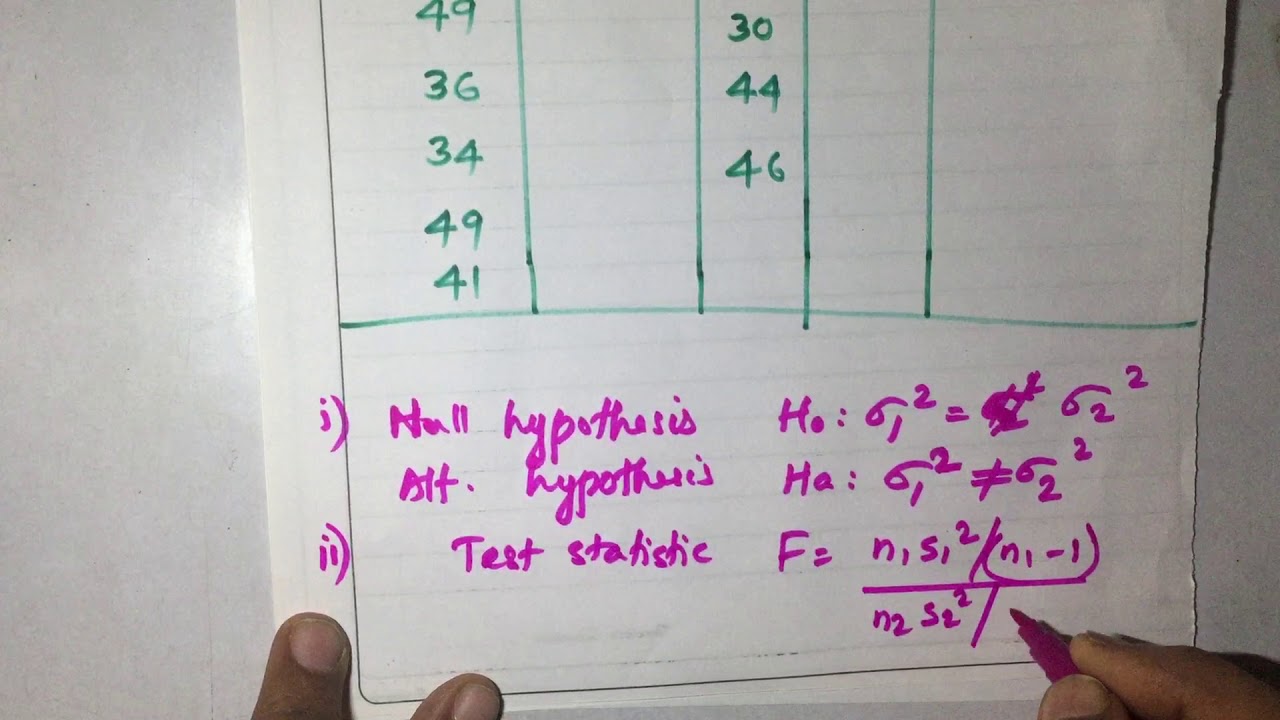 49 30
36 44
34 46
49
41
i) Null hypothesis H₀: σ₁² = σ₂²
Alt. hypothesis Ha: σ₁² ≠ σ₂²
ii) Test statistic F = n₁s₁²/(n₁-1)
n₂s₂²/